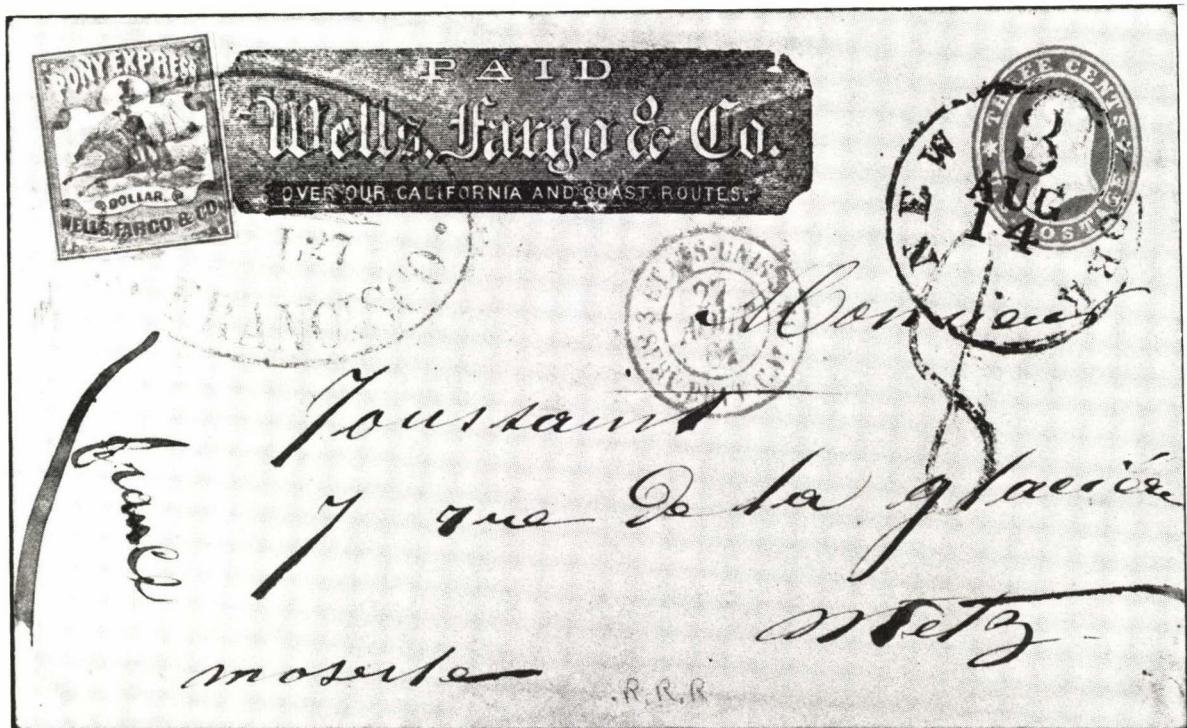 PONY EXPRESS
1
DOLLAR.
WELLS, FARGO & CO.
PAID
Wells, Fargo & Co.
OVER OUR CALIFORNIA AND COAST ROUTES.
THREE CENTS
POSTAGE
NEW YORK
3
AUG
14
FRANCISCO
3 ETATS-UNIS
27
Monsieur
Toussaint
7 rue de la glacière
Metz
moselle
france
R.R.R